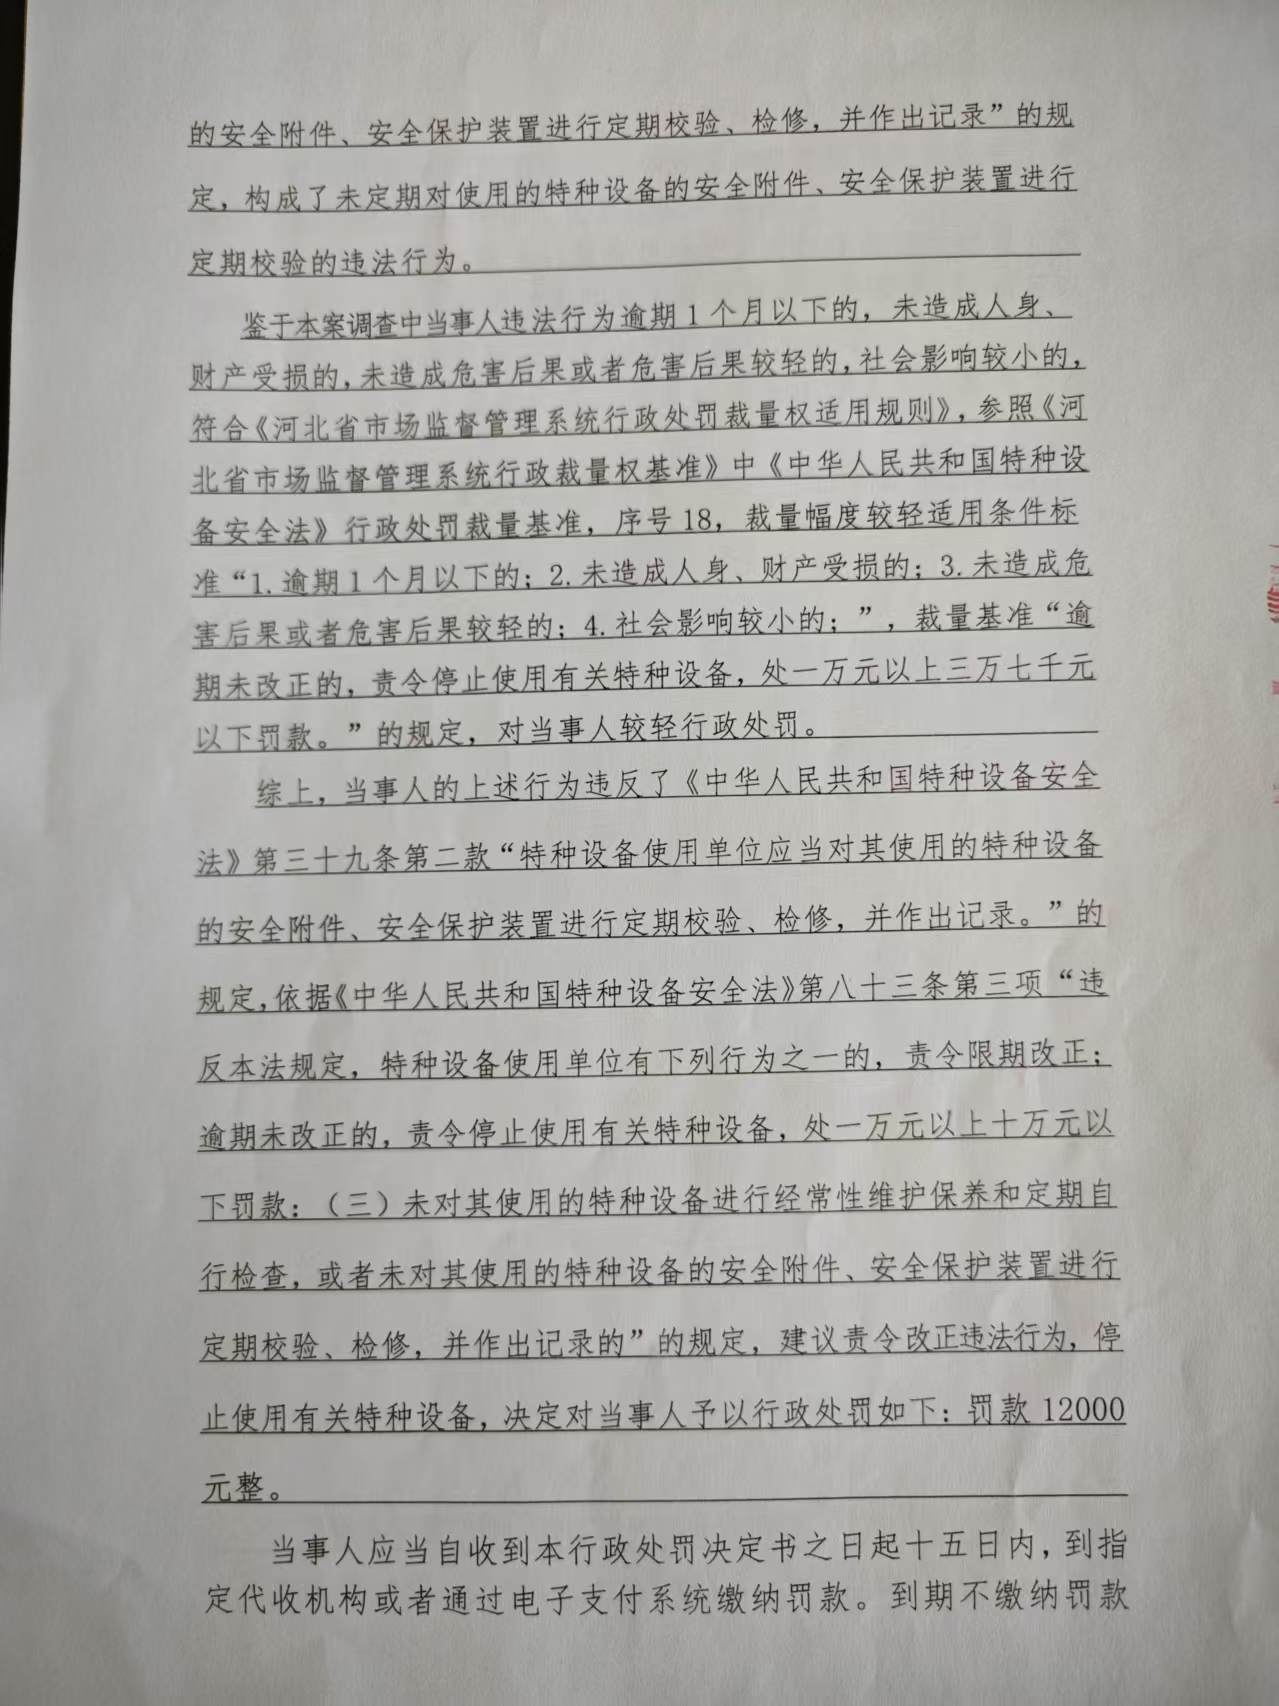 的安全附件、安全保护装置进行定期校验、检修，并作出记录”的规
定，构成了未定期对使用的特种设备的安全附件、安全保护装置进行
定期校验的违法行为。
鉴于本案调查中当事人违法行为逾期1个月以下的，未造成人身、
财产受损的，未造成危害后果或者危害后果较轻的，社会影响较小的，
符合《河北省市场监督管理系统行政处罚裁量权适用规则》，参照《河
北省市场监督管理系统行政裁量权基准》中《中华人民共和国特种设
备安全法》行政处罚裁量基准，序号18，裁量幅度较轻适用条件标
准“1.逾期1个月以下的；2.未造成人身、财产受损的；3.未造成危
害后果或者危害后果较轻的；4.社会影响较小的；”，裁量基准“逾
期未改正的，责令停止使用有关特种设备，处一万元以上三万七千元
以下罚款。”的规定，对当事人较轻行政处罚。
综上，当事人的上述行为违反了《中华人民共和国特种设备安全
法》第三十九条第二款“特种设备使用单位应当对其使用的特种设备
的安全附件、安全保护装置进行定期校验、检修，并作出记录。”的
规定，依据《中华人民共和国特种设备安全法》第八十三条第三项“违
反本法规定，特种设备使用单位有下列行为之一的，责令限期改正；
逾期未改正的，责令停止使用有关特种设备，处一万元以上十万元以
下罚款：（三）未对其使用的特种设备进行经常性维护保养和定期自
行检查，或者未对其使用的特种设备的安全附件、安全保护装置进行
定期校验、检修，并作出记录的”的规定，建议责令改正违法行为，停
止使用有关特种设备，决定对当事人予以行政处罚如下：罚款12000
元整。
当事人应当自收到本行政处罚决定书之日起十五日内，到指
定代收机构或者通过电子支付系统缴纳罚款。到期不缴纳罚款